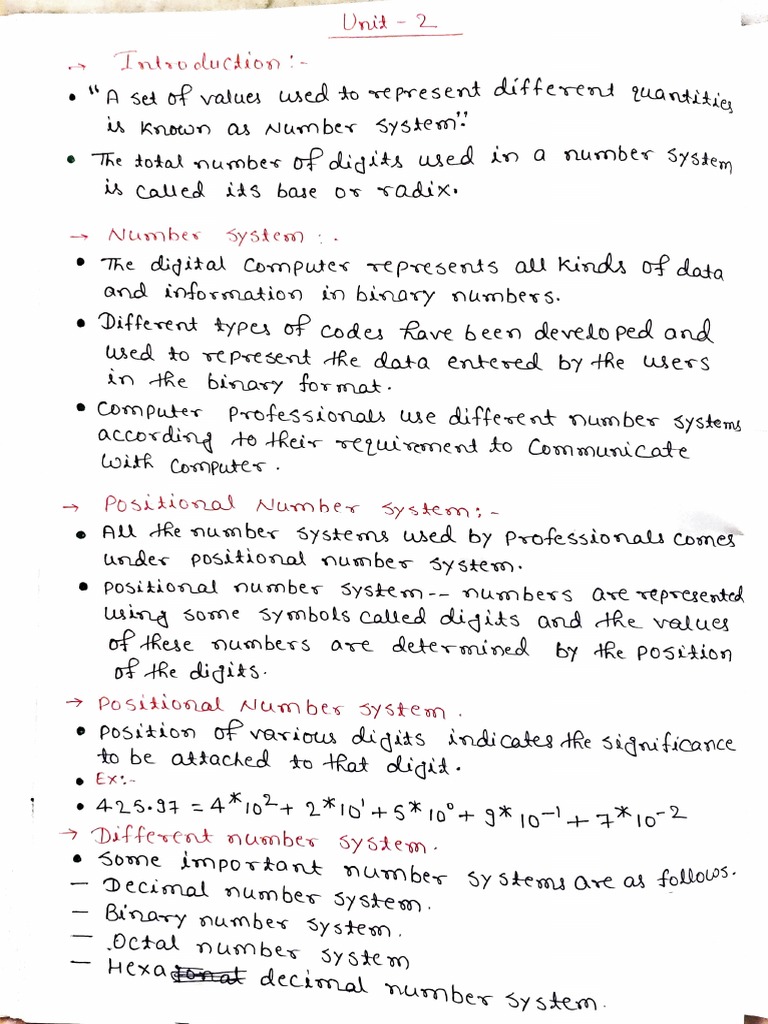 Unit - 2
→ Introduction:-
• "A set of values used to represent different quantities
is known as Number system".
• The total number of digits used in a number system
is called its base or radix.
→ Number system:.
• The digital computer represents all kinds of data
and information in binary numbers.
• Different types of codes have been developed and
used to represent the data entered by the users
in the binary format.
• Computer Professionals use different number systems
according to their requirement to communicate
with computer.
→ Positional Number system:-
• All the number systems used by professionals comes
under positional number system.
• positional number system-- numbers are represented
using some symbols called digits and the values
of these numbers are determined by the position
of the digits.
→ Positional Number system.
• position of various digits indicates the significance
to be attached to that digit.
• Ex:-
• 425.97 = 4*10² + 2*10¹ + 5*10⁰ + 9*10⁻¹ + 7*10⁻²
→ Different number system.
• some important number systems are as follows.
— Decimal number system.
— Binary number system.
— Octal number system
— Hexa decimal number system.